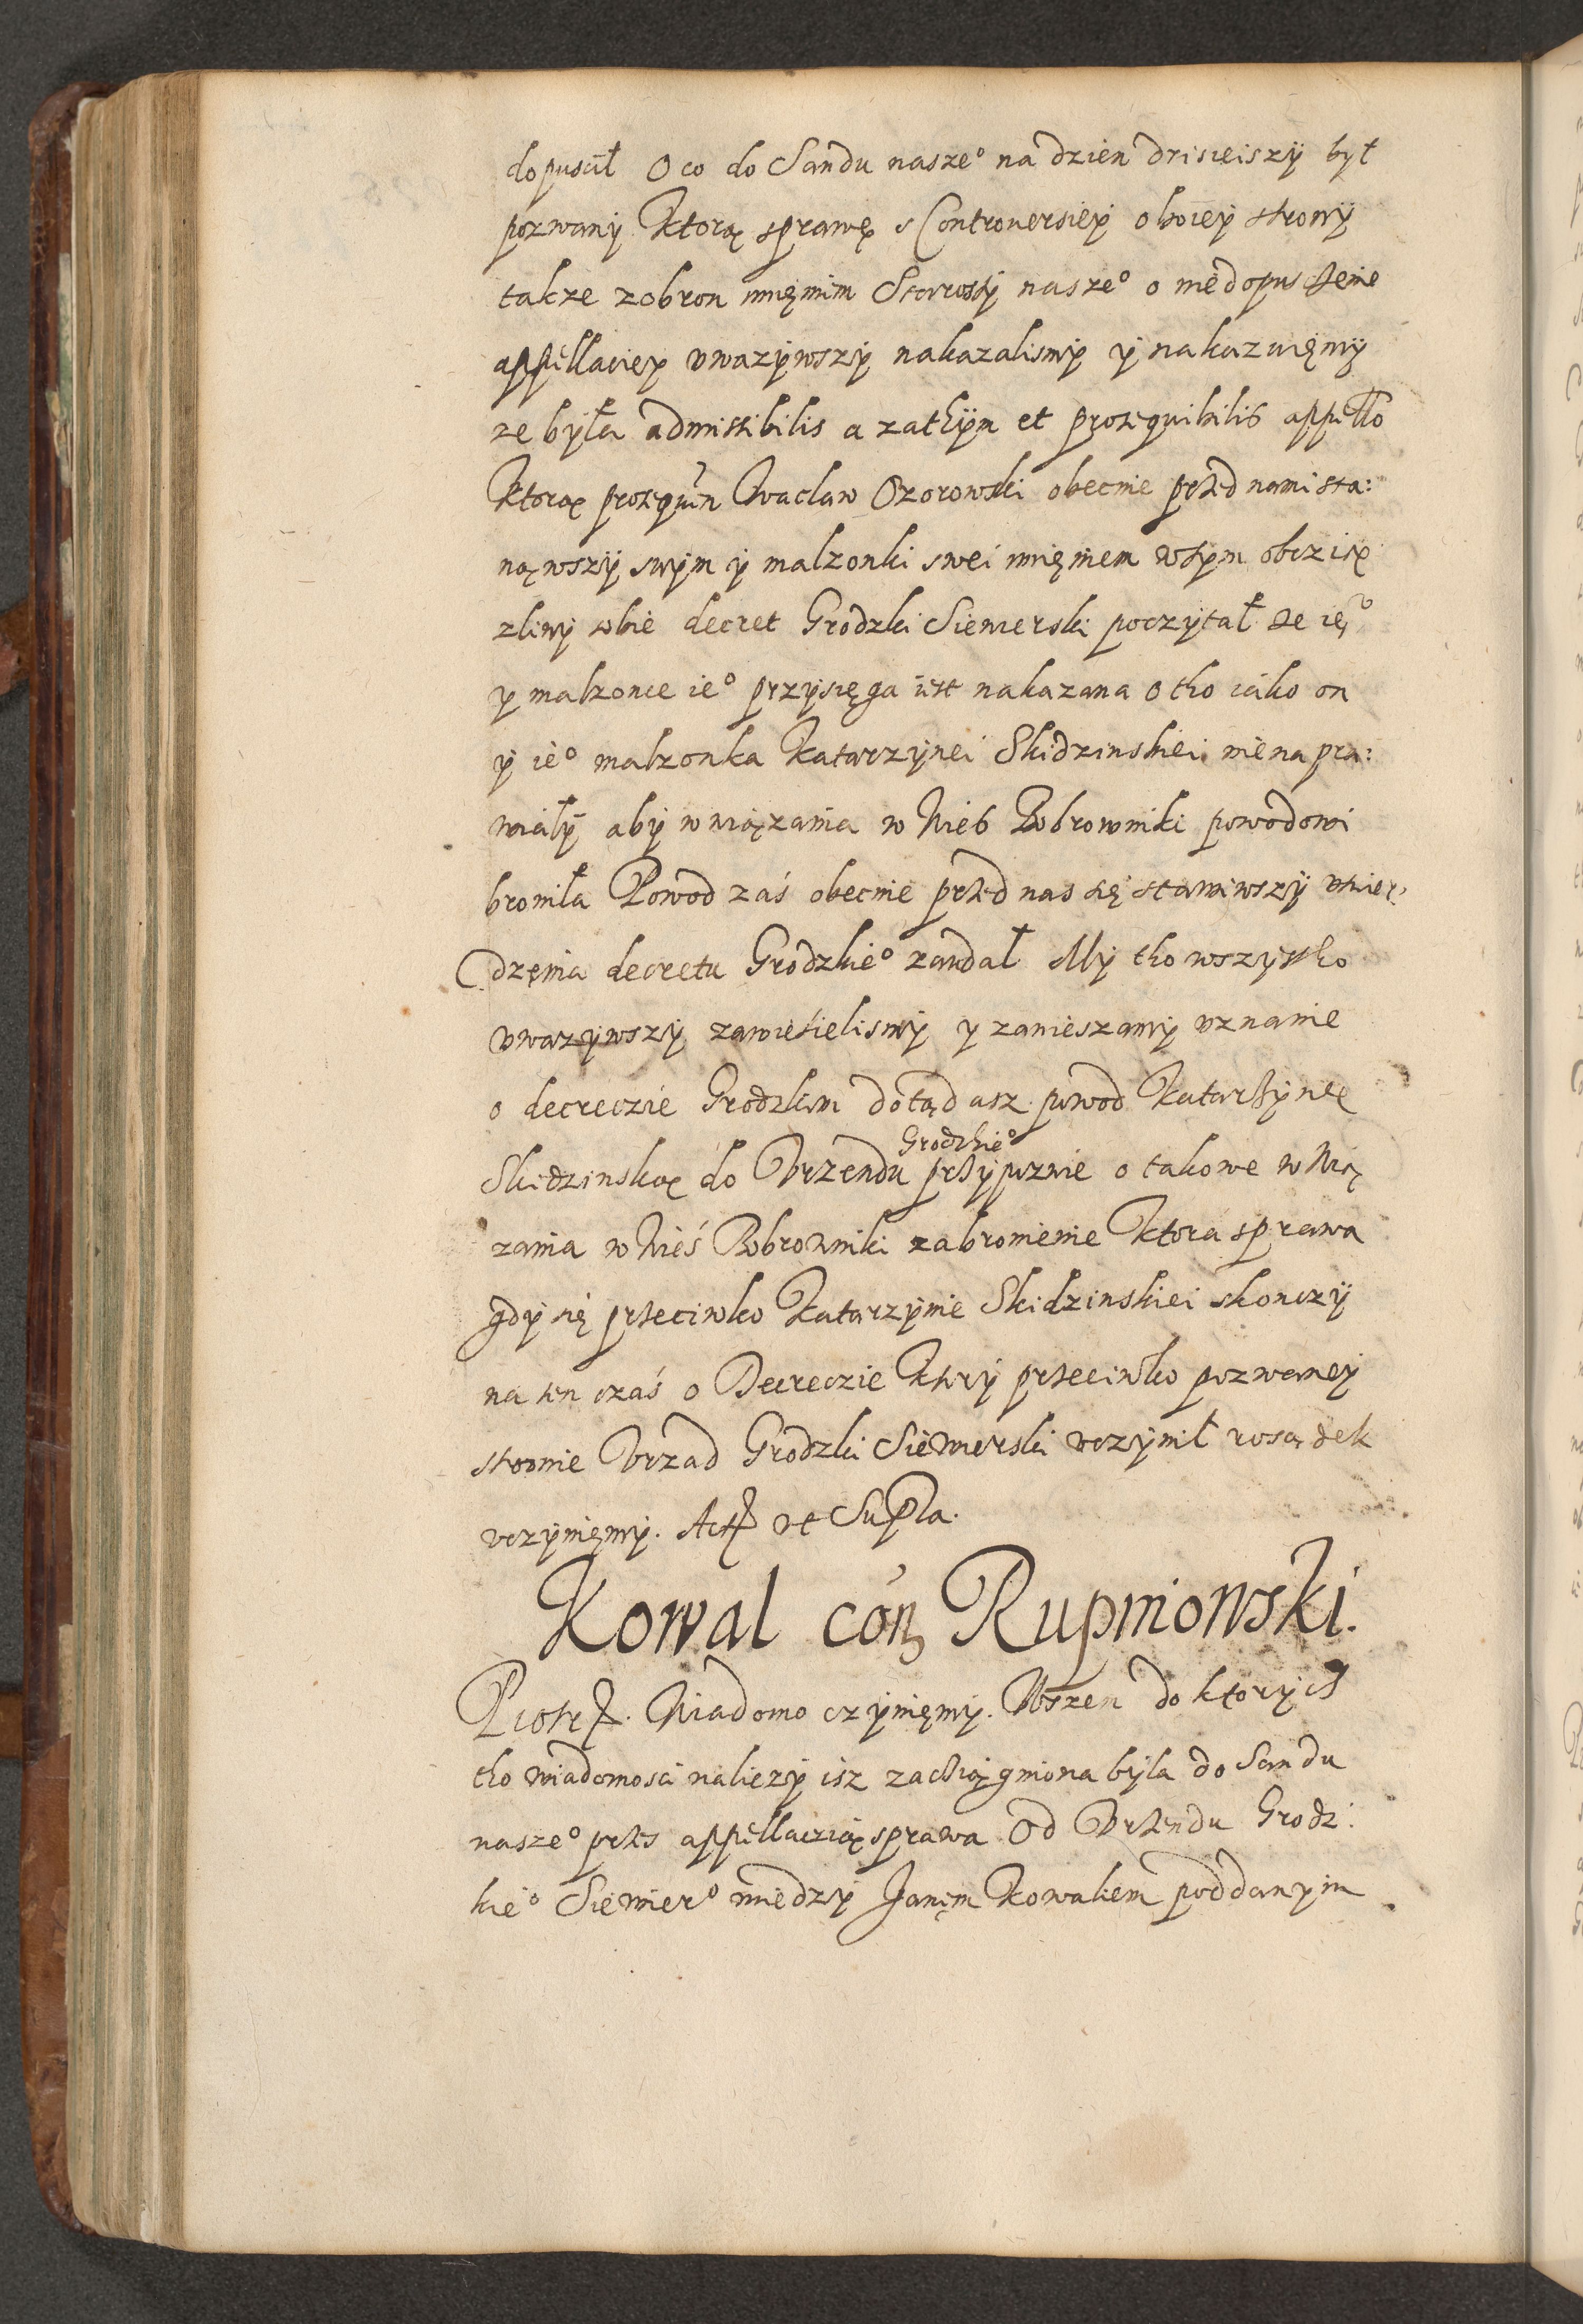 dopuscił O co do Sandu nasze° na dzien dzisieiszÿ był
pozwanÿ Ktorą sprawę s Controuersieÿ oboieÿ stronÿ
takze z obron imięnim Starostÿ nasze° o niedopusczenie
appellacieÿ vwazÿwszÿ nakazalismÿ ÿ nakazuięmÿ
ze bÿła admissibilis a zathÿm et prosequibilis appello
Ktorą prosequen Wacław Ozorowski obecnie przed nami sta:
nąwszÿ swÿm ÿ malzonki swei imięniem wtÿm obczisz
zliwÿ sobie decret Grodzki Siewierski poczÿtał ze ie°
ÿ malzonce ie° przÿsięga iest nakazana O tho iako on
ÿ ie° malzonka Katarzÿnei Skidzinskiei nie napra:
wiałÿ abÿ wwiązania w Wieś Bobrowniki powodowi
broniła Powod zaś obecnie przed nas się stawiwszÿ vtwier,
dzęnia decretu Grodzkie° ządał Mÿ tho wszÿstko
vwazÿwszÿ zawiesielismÿ ÿ zawieszamÿ vznanie
o decreczie Grodzkim dotąd asz powod Katarzÿnę
Skidzinską do Vrzendu Grodzkie° przÿpozwie o takowe wWią
zania w Wieś Bobrowniki zabronienie Ktora sprawa
gdÿ się przeciwko Katarzÿnie Skidzinskiei skonczÿ
na ten czaś o Decreczie Ktorÿ przeciwko pozwaneÿ
stronie Vrzad Grodzki Siewierski vczÿnił rosądek
vczÿnięmÿ. Act vt Supra.
Kowal con Rupniowski.
Piotr. Wiadomo czÿnięmÿ. Wszem do ktorÿch
tho wiadomosci naliezÿ isz zachiągniona bÿla do Sandu
nasze° przes appellaczią sprawa Od Vrzendu Grodz:
kie° Siewier° miedzÿ Janęm Kowalem poddanÿm